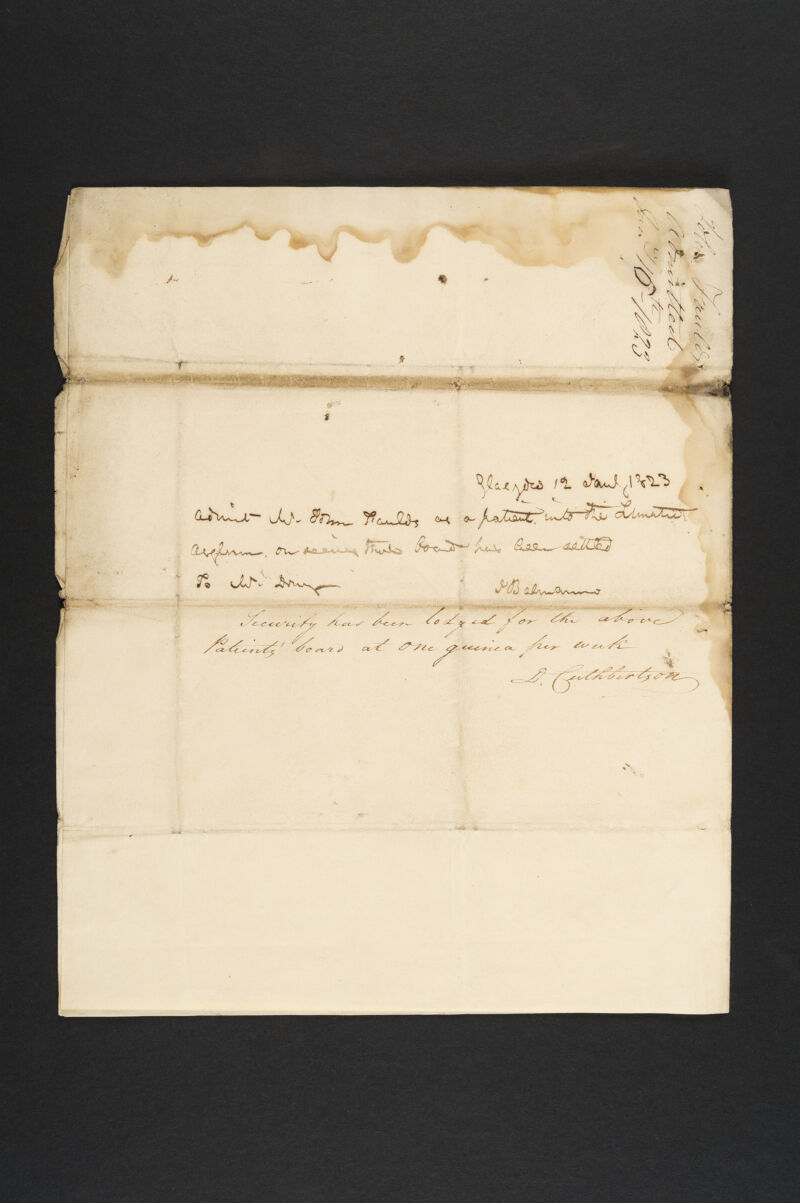 John Faulds
Admitted
Jan. 16th 1823
Glasgow 12 Jany 1823
Admit Mr. John Faulds as a patient into the Lunatic
Asylum on seeing that board has been settled
To Mr. Drury
J Balmanno
Security has been lodged for the above
Patients' board at one guinea per week
D. Cuthbertson